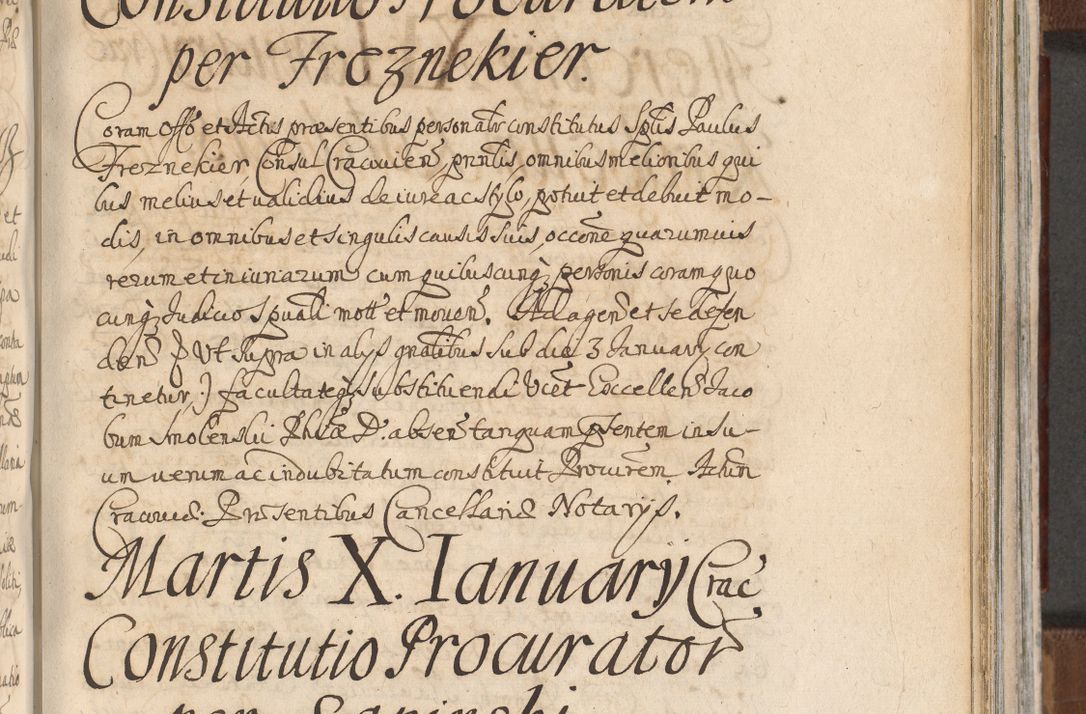 Constitutio Procuratem
per Freznekier.
Coram Offo et Actis præsentibus personalr constitutus Sptis Paulus
Freznekier Consul Cracouien pnntis, omnibus melioribus qui
bus melius et ualidius de iure ac stylo, potuit et debuit mo-
dis, in omnibus et singulis causis suis, occone quarumuis
rerum et iniuriarum cum quibuscunq; personis coram quo
cunq; Judicio Spuali mott et mouen. Ad agen et se defen
den (Ut supra in alijs gnalibus sub die 3 January con
tinetur:) facultateq; substituendi Ucet Excellen Jaco
bum Smolenski Phiæ D. absen tanquam psentem in su-
um uerum ac indubitatum constituit Procurem. Actum
Cracouiæ. Præsentibus Cancellariæ Notarijs.
Martis X. Ianuarij Crac.
Constitutio Procurator
per Sapinski